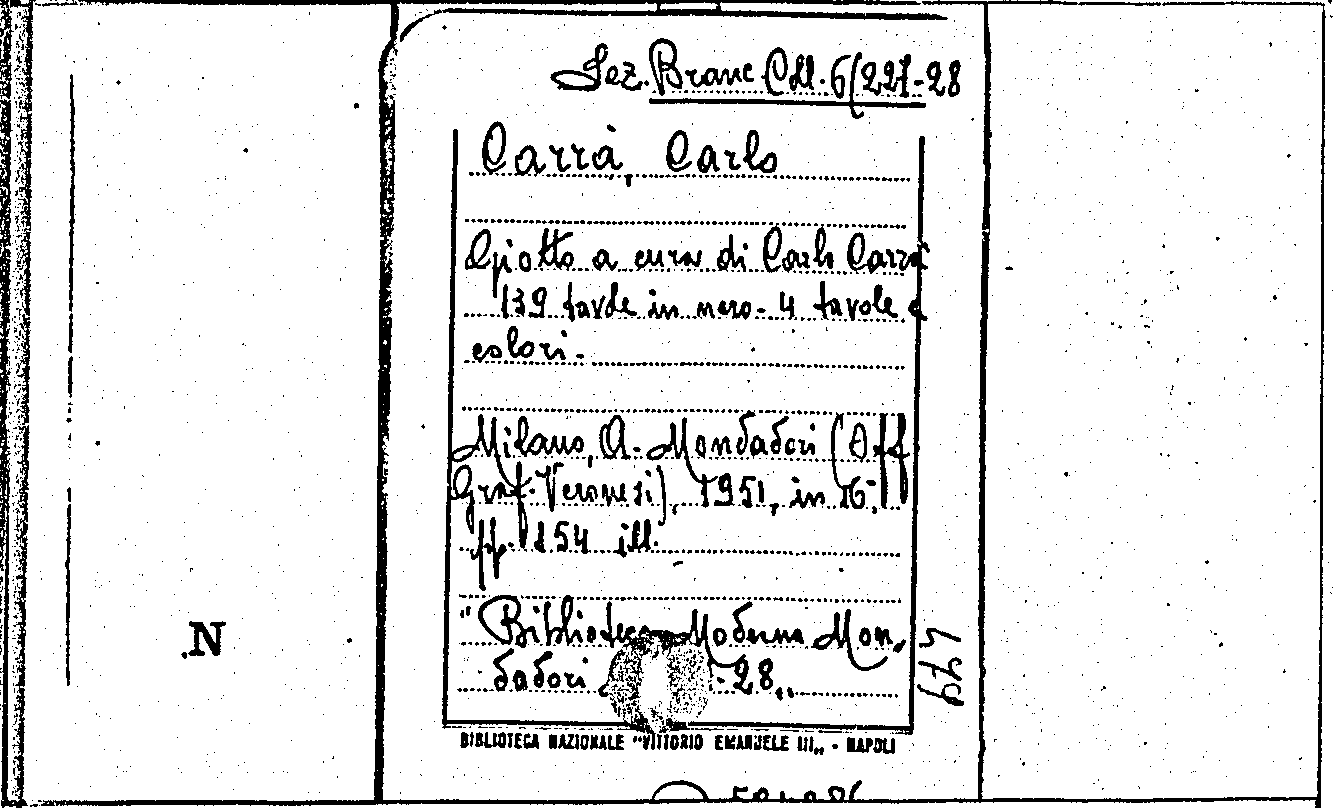 Sez. Branc Coll. 6(221-28
Carrà, Carlo
Giotto a cura di Carlo Carrà
139 tavole in nero - 4 tavole a
colori.
Milano, A. Mondadori (Off.
Graf. Veronesi), 1951, in 16°,
pp. 154 ill.
"Biblioteca Moderna Mon,
dadori -28„
479
N
BIBLIOTECA NAZIONALE "VITTORIO EMANUELE III„ - NAPOLI